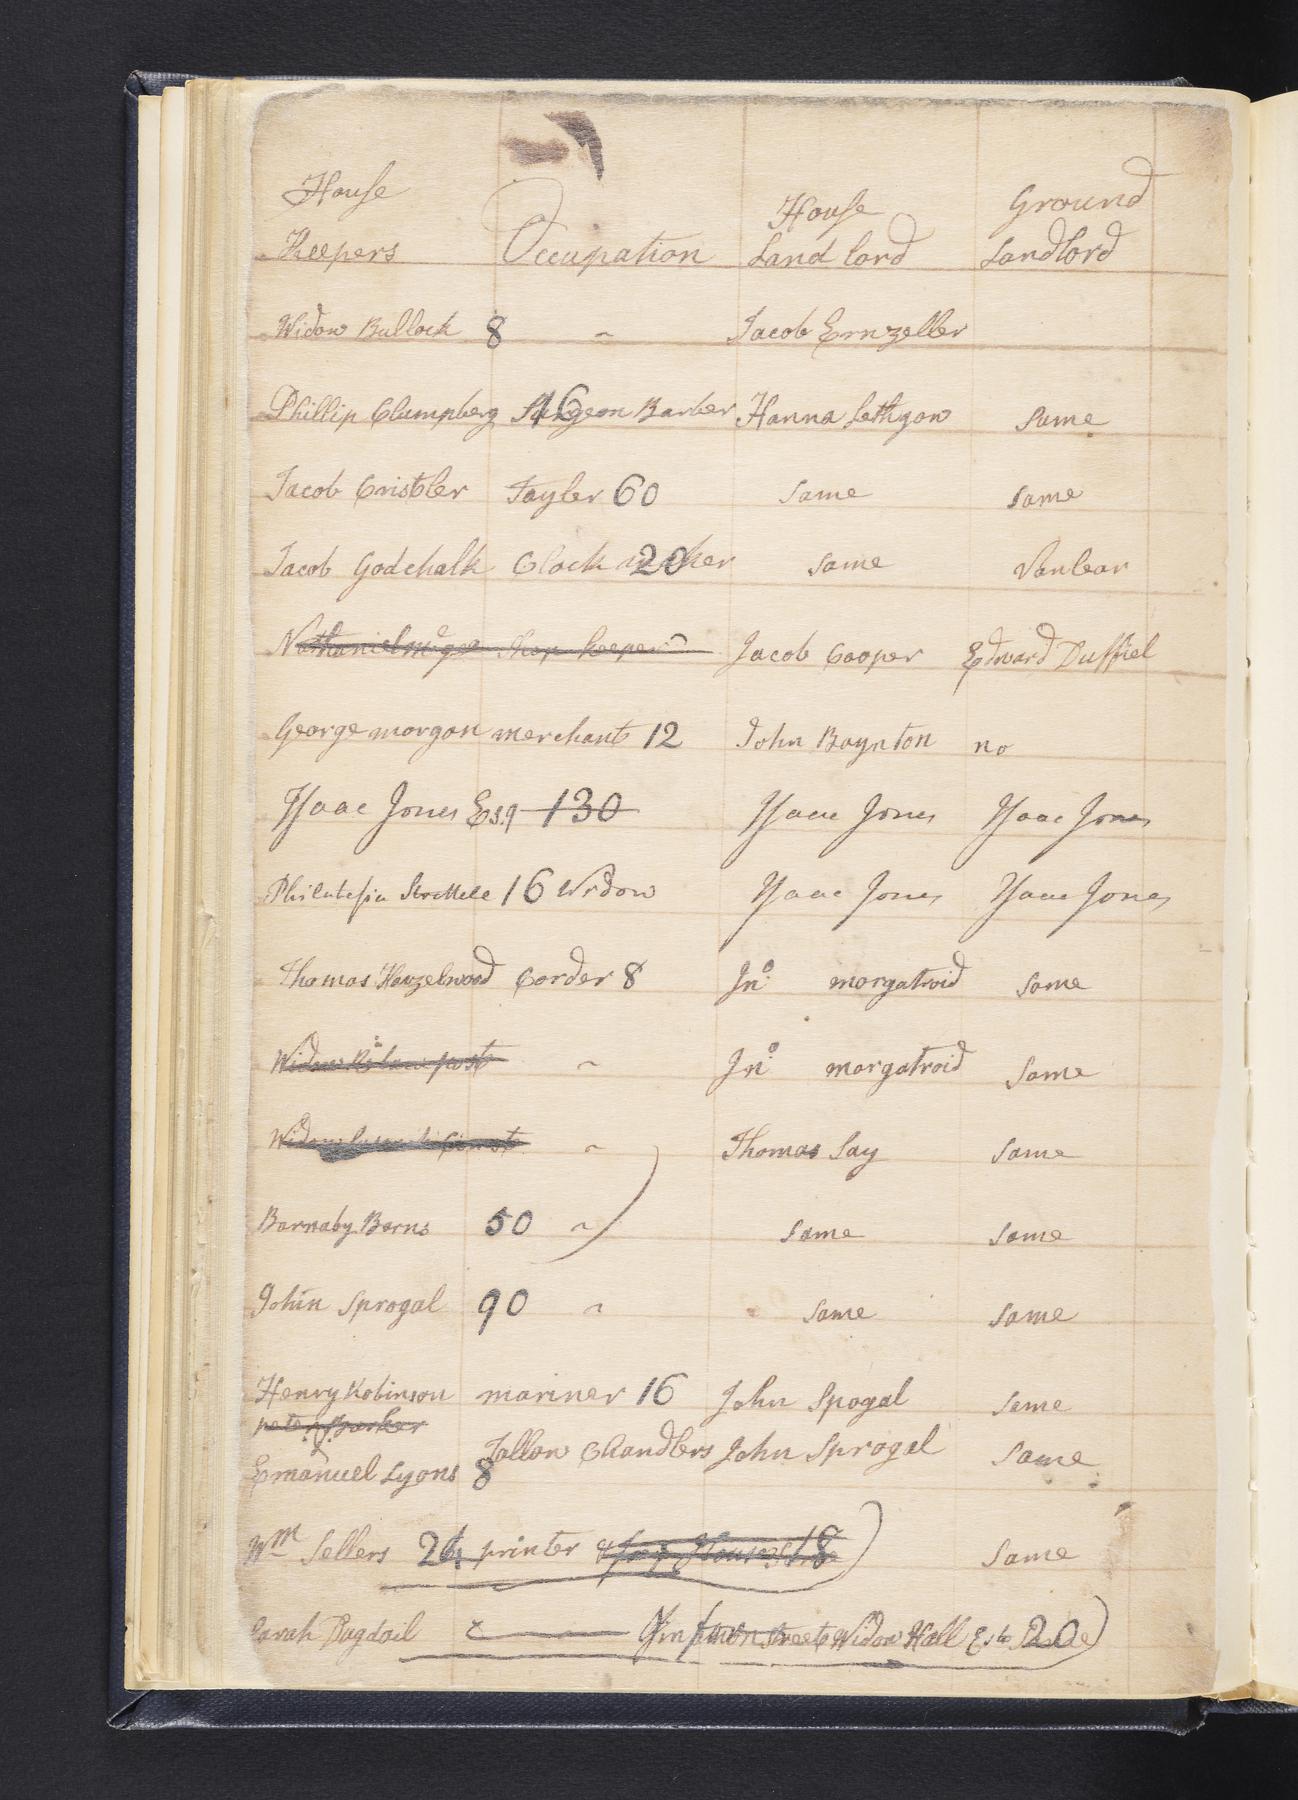 House House Ground
Keepers Occupation Land lord Landlord
Widow Bullock 8 ~ Jacob Ernzeller
Phillip Clumpberg Surgeon Barber 16 Hanna Lethgow Same
Jacob Cristler Tayler 60 Same Same
Jacob Godchalk Clock maker 20 Same Vanlear
Nathaniel shop keeper Jacob Cooper Edward Duffiel
George morgan merchant 12 John Baynton no
Isaac Jones Esq 130 Isaac Jones Isaac Jones
16 Widow Isaac Jones Isaac Jones
Thomas Hazelwood Corder 8 Jno morgatroid Same
Widow post ~ Jno morgatroid Same
Widow ~ Thomas Say Same
Barnaby Barns 50 ~ Same Same
John Sprogal 90 ~ Same Same
Henry Robinson mariner 16 John Spogal Same
peter Barker
Emanuel Lyons 8 Tallow Chandlers John Sprogal Same
Wm Sellers 24 printer 18 Same
Sarah Ragdail in street Widow Hall Est 20